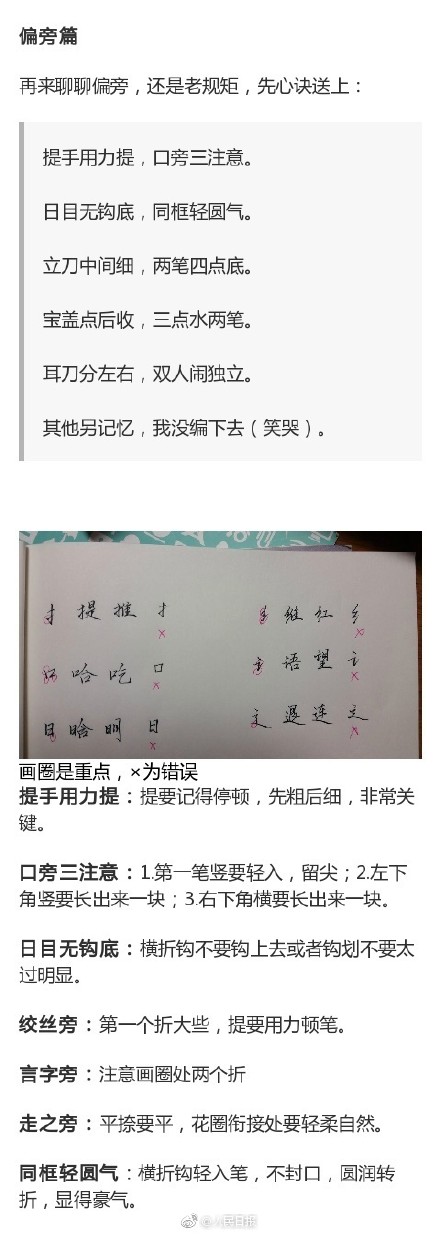 偏旁篇
再来聊聊偏旁，还是老规矩，先心诀送上：
提手用力提，口旁三注意。
日目无钩底，同框轻圆气。
立刀中间细，两笔四点底。
宝盖点后收，三点水两笔。
耳刀分左右，双人闹独立。
其他另记忆，我没编下去（笑哭）。
扌 提 推 扌
纟 维 红 纟
口 哈 吃 口
讠 语 望 讠
日 晗 明 日
辶 退 连 辶
画圈是重点，×为错误
提手用力提：提要记得停顿，先粗后细，非常关
键。
口旁三注意：1.第一笔竖要轻入，留尖；2.左下
角竖要长出来一块；3.右下角横要长出来一块。
日目无钩底：横折钩不要钩上去或者钩划不要太
过明显。
绞丝旁：第一个折大些，提要用力顿笔。
言字旁：注意画圈处两个折
走之旁：平捺要平，花圈衔接处要轻柔自然。
同框轻圆气：横折钩轻入笔，不封口，圆润转
折，显得豪气。
@人民日报